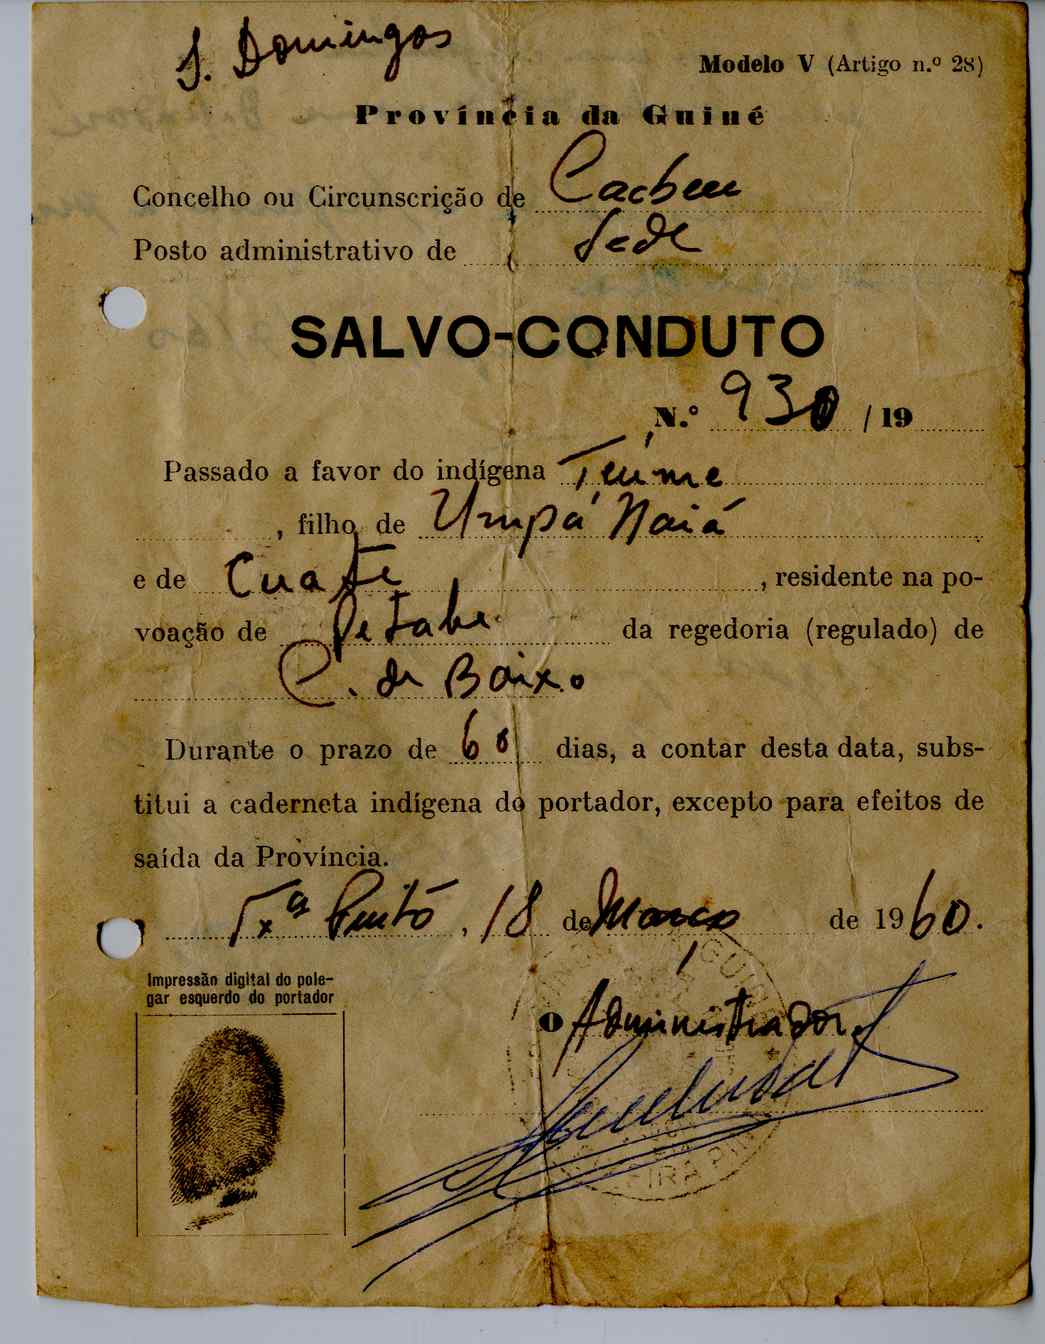 S. Domingos
Modelo V (Artigo n.º 28)
Província da Guiné
Concelho ou Circunscrição de Cacheu
Posto administrativo de Sede
SALVO-CONDUTO
N.º 930 / 19
Passado a favor do indígena
, filho de Umpá Naiá
e de Cuate, residente na po-
voação de Petabe da regedoria (regulado) de
C. de Baixo
Durante o prazo de 60 dias, a contar desta data, subs-
titui a caderneta indígena do portador, excepto para efeitos de
saída da Província.
Txª Pinto, 18 de Março de 1960.
Impressão digital do pole-
gar esquerdo do portador
O Administrador